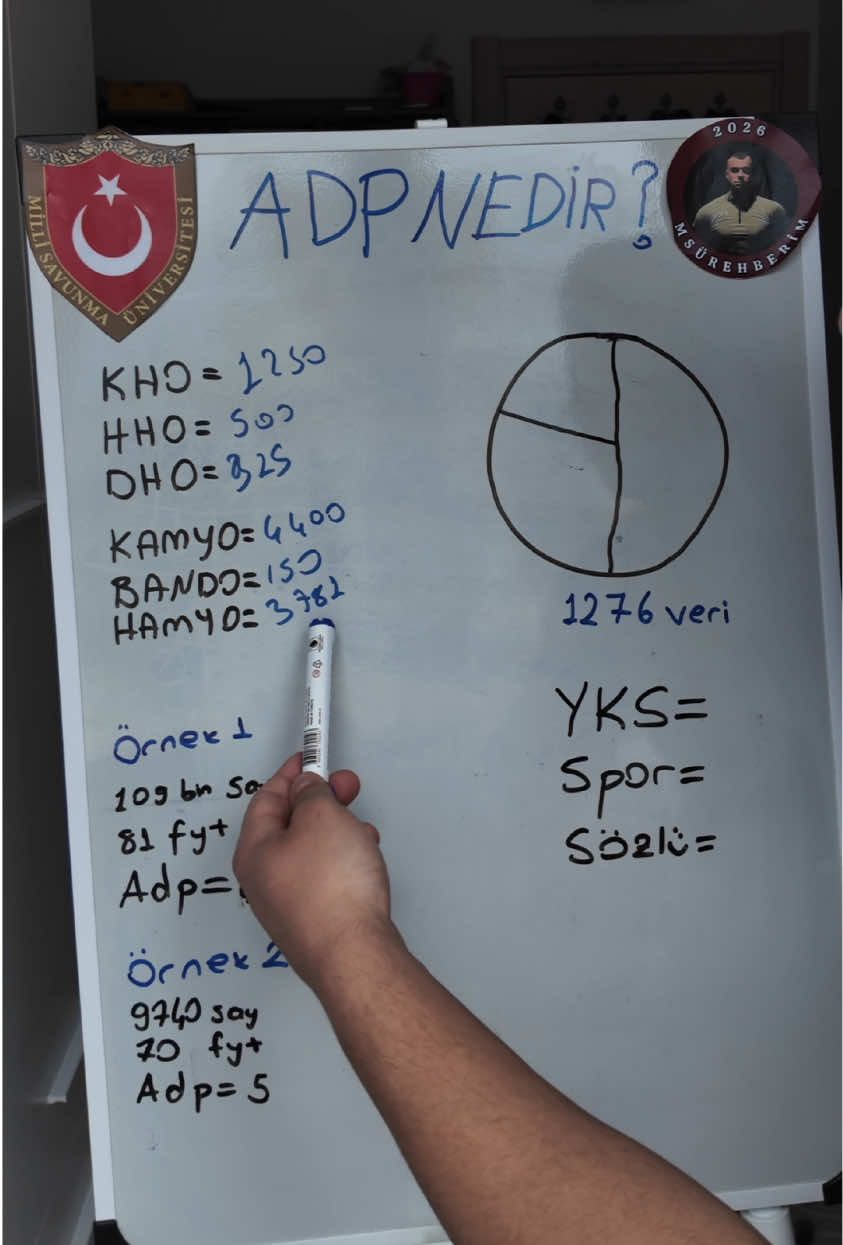 ADP NEDİR?
MİLLİ SAVUNMA ÜNİVERSİTESİ
2026
MSÜREHBERİM
KHO = 1250
HHO = 500
DHO = 325
KAMYO = 4400
BANDO = 150
HAMYO = 3782
1276 veri
YKS =
Spor =
Sözlü =
Örnek 1
109 bin
81 fyt
Adp =
Örnek 2
9740 say
70 fyt
Adp = 5